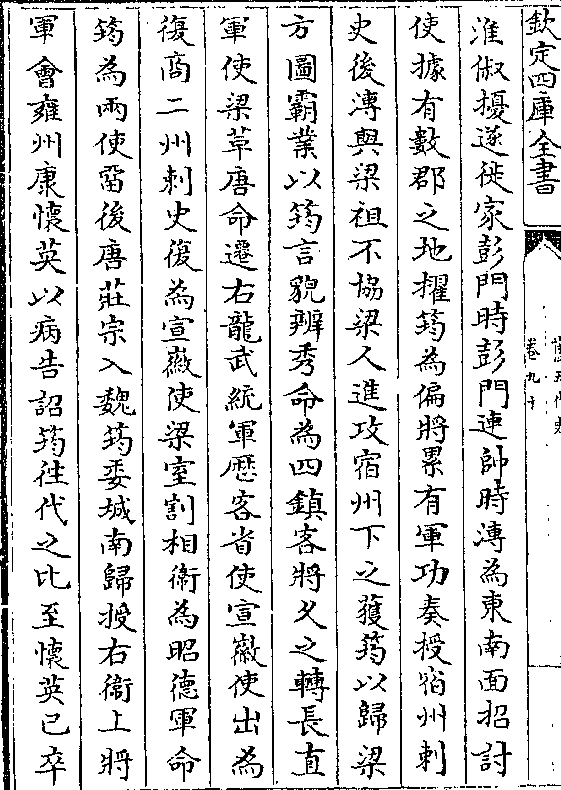 欽定四庫全書
卷九十
淮俶擾遂徙家彭門時彭門連帥時溥為東南面招討
使據有數郡之地擢筠為偏將累有軍功奏授宿州刺
史後溥與梁祖不協梁人進攻宿州下之獲筠以歸梁
方圖霸業以筠言貌辨秀命為四鎮客將久之轉長直
軍使梁革唐命遷右龍武統軍歷客省使宣徽使出為
復商二州刺史復為宣徽使梁室割相衛為昭德軍命
筠為兩使留後唐莊宗入魏筠委城南歸授右衛上將
軍會雍州康懷英以病告詔筠往代之比至懷英已卒